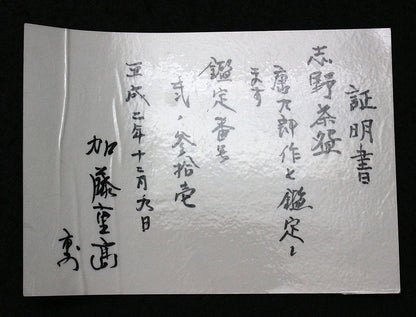 証明書
志野茶盌
唐九郎作と鑑定し
ます
鑑定番号
弐ノ参拾壱
平成二年十二月九日
加藤重高